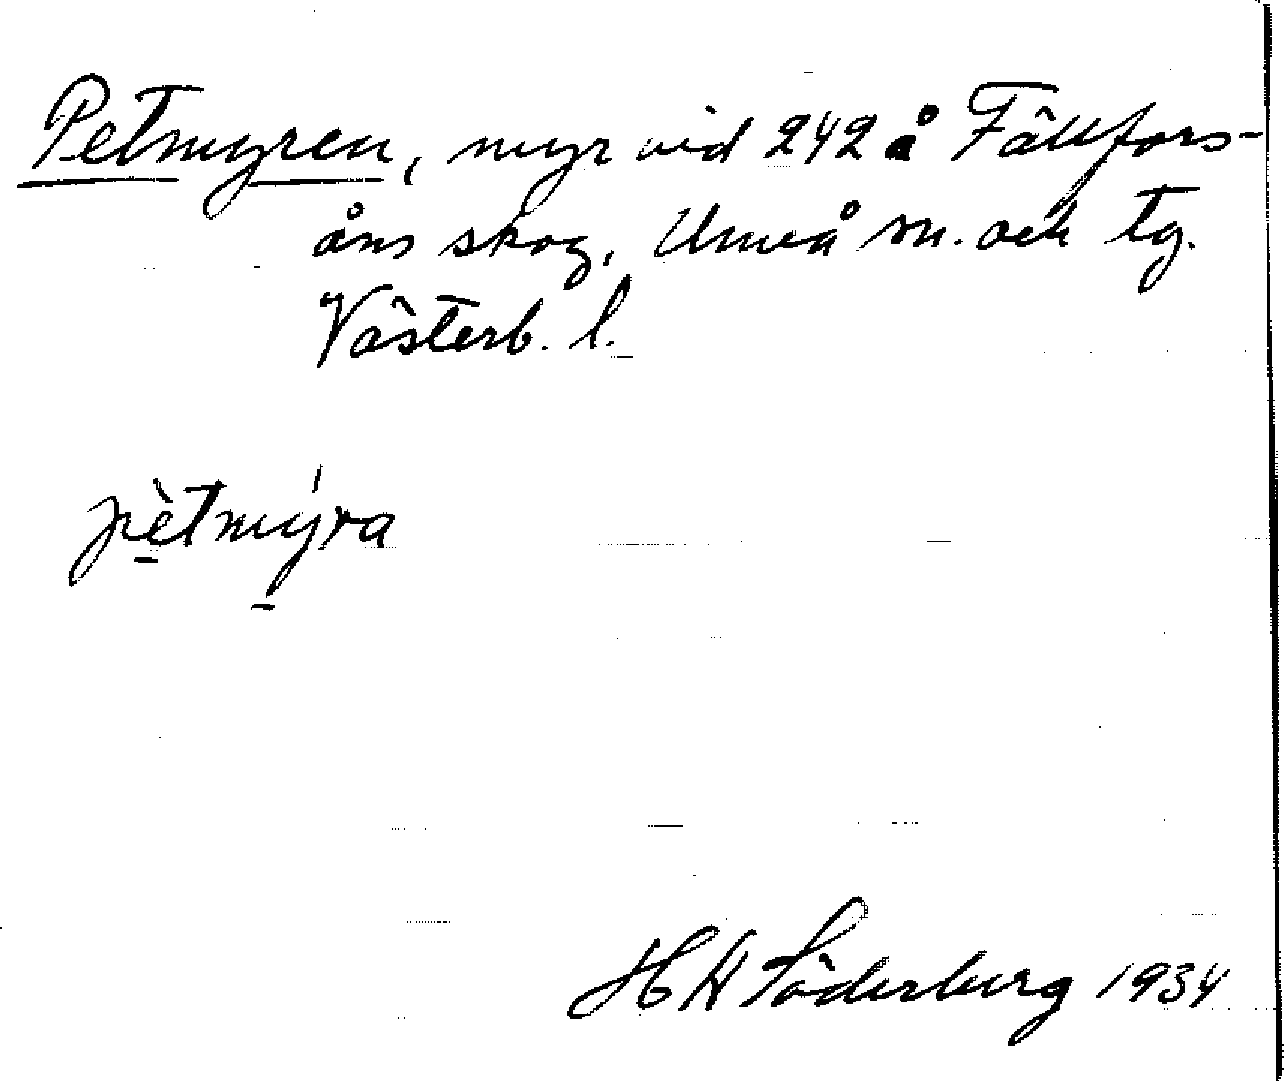 Petmyren, myr vid 242 å Fällfors-
åns skog, Umeå sn. och tg.
Västerb. l.
pètmýra
H W Söderberg 1934